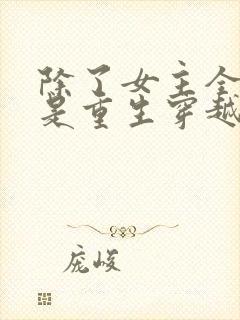 除了女主全
是重生穿越
庞峻